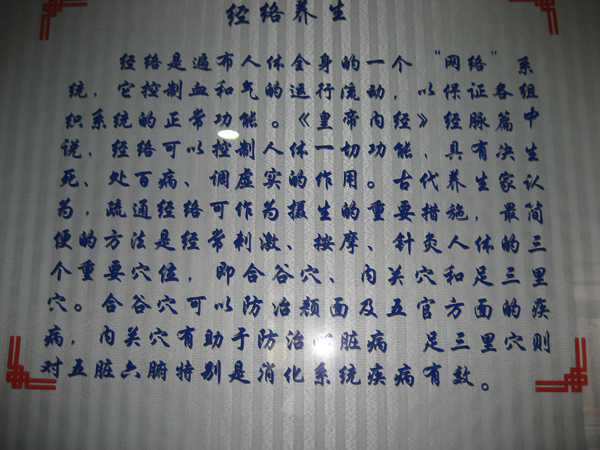 经络养生
经络是遍布人体全身的一个“网络”系
统，它控制血和气的运行流动，以保证各组
织系统的正常功能。《皇帝内经》经脉篇中
说，经络可以控制人体一切功能，具有决生
死、处百病、调虚实的作用。古代养生家认
为，疏通经络可作为摄生的重要措施，最简
便的方法是经常刺激、按摩、针灸人体的三
个重要穴位，即合谷穴、内关穴和足三里
穴。合谷穴可以防治颜面及五官方面的疾
病，内关穴有助于防治心脏病 足三里穴则
对五脏六腑特别是消化系统疾病有效。